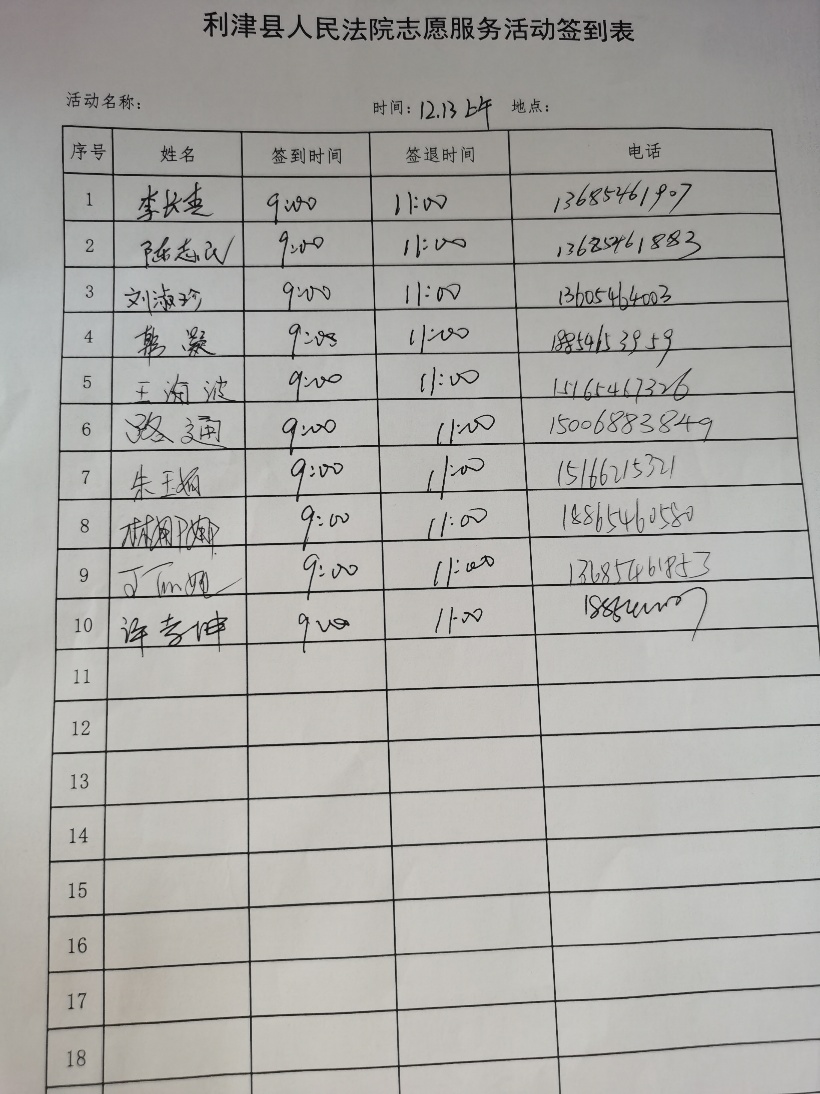 利津县人民法院志愿服务活动签到表
活动名称： 时间：12.13上午 地点：
序号 姓名 签到时间 签退时间 电话
1 李长春 9:00 11:00 13685461907
2 陈志民 9:00 11:00 13685461883
3 刘淑珍 9:00 11:00 13605464003
4 韩凝 9:00 11:00 18854653959
5 王海波 9:00 11:00 15165467326
6 路通 9:00 11:00 15006883849
7 朱玉 9:00 11:00 15166215321
8 9:00 11:00 18865460580
9 9:00 11:00 13685461853
10 许孝坤 9:00 11:00
11
12
13
14
15
16
17
18